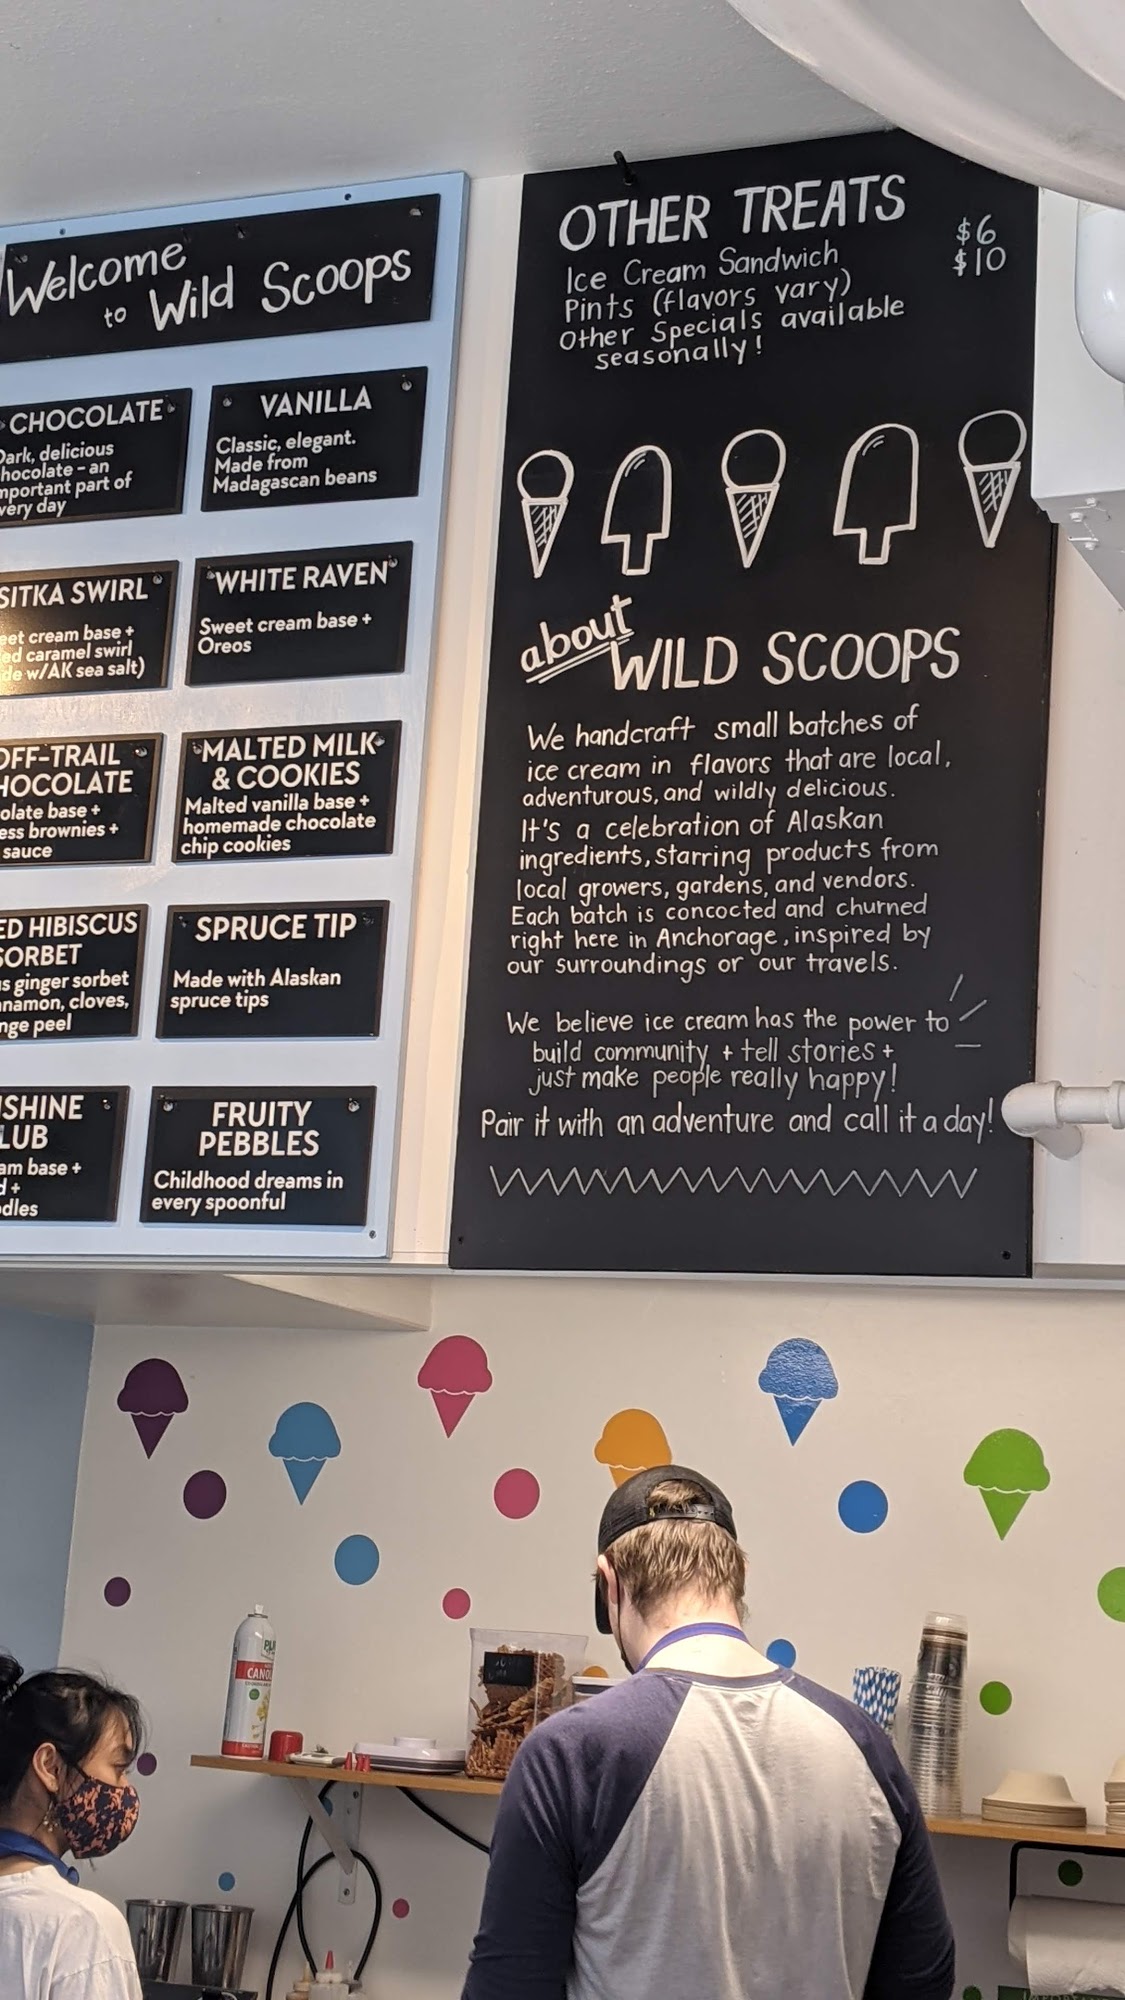 Welcome
to Wild Scoops
CHOCOLATE
Dark, delicious
chocolate – an
important part of
every day
VANILLA
Classic, elegant.
Made from
Madagascan beans
SITKA SWIRL
eet cream base +
ed caramel swirl
de w/AK sea salt)
WHITE RAVEN
Sweet cream base +
Oreos
OFF-TRAIL
CHOCOLATE
olate base +
ess brownies +
sauce
MALTED MILK
& COOKIES
Malted vanilla base +
homemade chocolate
chip cookies
ED HIBISCUS
SORBET
s ginger sorbet
nnamon, cloves,
nge peel
SPRUCE TIP
Made with Alaskan
spruce tips
SHINE
LUB
am base +
d +
odles
FRUITY
PEBBLES
Childhood dreams in
every spoonful
OTHER TREATS
Ice Cream Sandwich $6
Pints (flavors vary) $10
Other Specials available
seasonally!
about
WILD SCOOPS
We handcraft small batches of
ice cream in flavors that are local,
adventurous, and wildly delicious.
It's a celebration of Alaskan
ingredients, starring products from
local growers, gardens, and vendors.
Each batch is concocted and churned
right here in Anchorage, inspired by
our surroundings or our travels.
We believe ice cream has the power to
build community + tell stories +
just make people really happy!
Pair it with an adventure and call it a day!